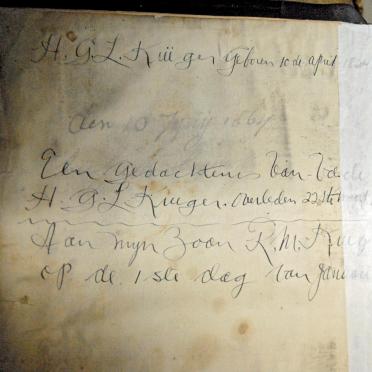 H. G. L. Krüger Geboren 10 de april
den 10 1864
Een gedachtenis van Vade
H. G. L Krueger. overleden 22ste
Aan myn Zoon R. M. Krug
op de 1 ste dag van Januar